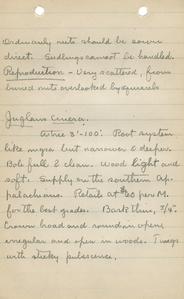 Ordinarily nuts should be sown
direct. Seedlings cannot be handled.
Reproduction - Very scattered, from
buried nuts overlooked by squirrels
Juglans cinerea.
A tree 75'-100'. Root system
like nigra but narrower & deeper.
Bole full & clean. Wood light and
soft. Supply in the southern Ap-
palachians. Retails at $60 per M.
for the best grades. Bark thin, 3/4".
Crown broad and round in open,
irregular and open in woods. Twigs
with sticky pubescence,